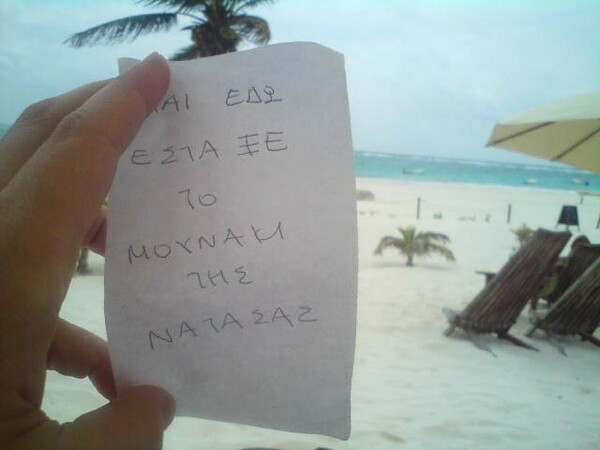 ΚΑΙ ΕΔΩ
ΕΣΤΑΞΕ
ΤΟ
ΜΟΥΝΑΚΙ
ΤΗΣ
ΝΑΤΑΣΑΣ